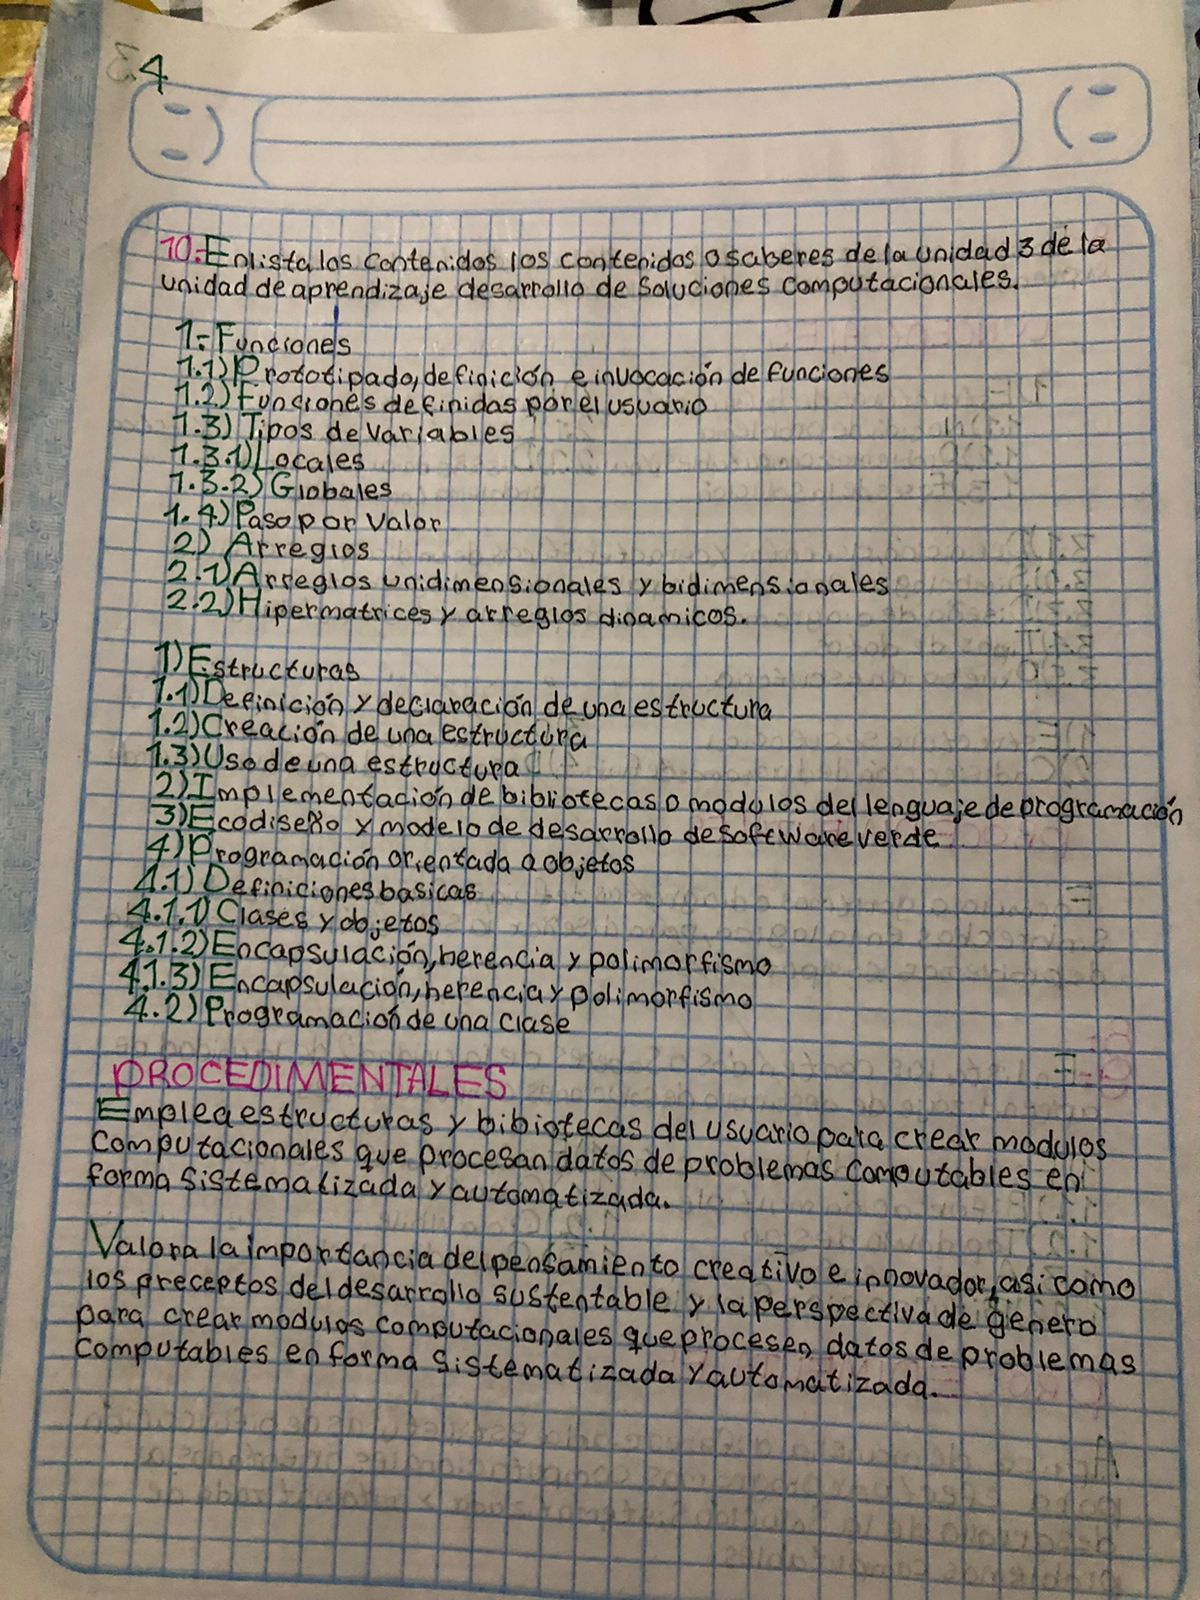 4
10. Enlista los contenidos los contenidos o saberes de la unidad 3 de la
unidad de aprendizaje desarrollo de Soluciones Computacionales.
1- Funciones
1.1) Prototipado, definición e invocación de funciones
1.2) Funciones definidas por el usuario
1.3) Tipos de Variables
1.3.1) Locales
1.3.2) Globales
1.4) Paso por Valor
2) Arreglos
2.1) Arreglos unidimensionales y bidimensionales
2.2) Hipermatrices y arreglos dinamicos.
1) Estructuras
1.1) Definición y declaración de una estructura
1.2) Creación de una estructura
1.3) Uso de una estructura
2) Implementación de bibliotecas o modulos del lenguaje de programación
3) Ecodiseño y modelo de desarrollo de Software verde
4) Programación orientada a objetos
4.1) Definiciones basicas
4.1.1) Clases y objetos
4.1.2) Encapsulación, herencia y polimorfismo
4.1.3) Encapsulación, herencia y polimorfismo
4.2) Programación de una clase
PROCEDIMENTALES
Emplea estructuras y bibiotecas del usuario para crear modulos
Computacionales que procesan datos de problemas Computables en
forma Sistematizada y automatizada.
Valora la importancia del pensamiento creativo e innovador, asi como
los preceptos del desarrollo sustentable y la perspectiva de género
para crear modulos computacionales que procesen datos de problemas
Computables en forma Sistematizada y automatizada.